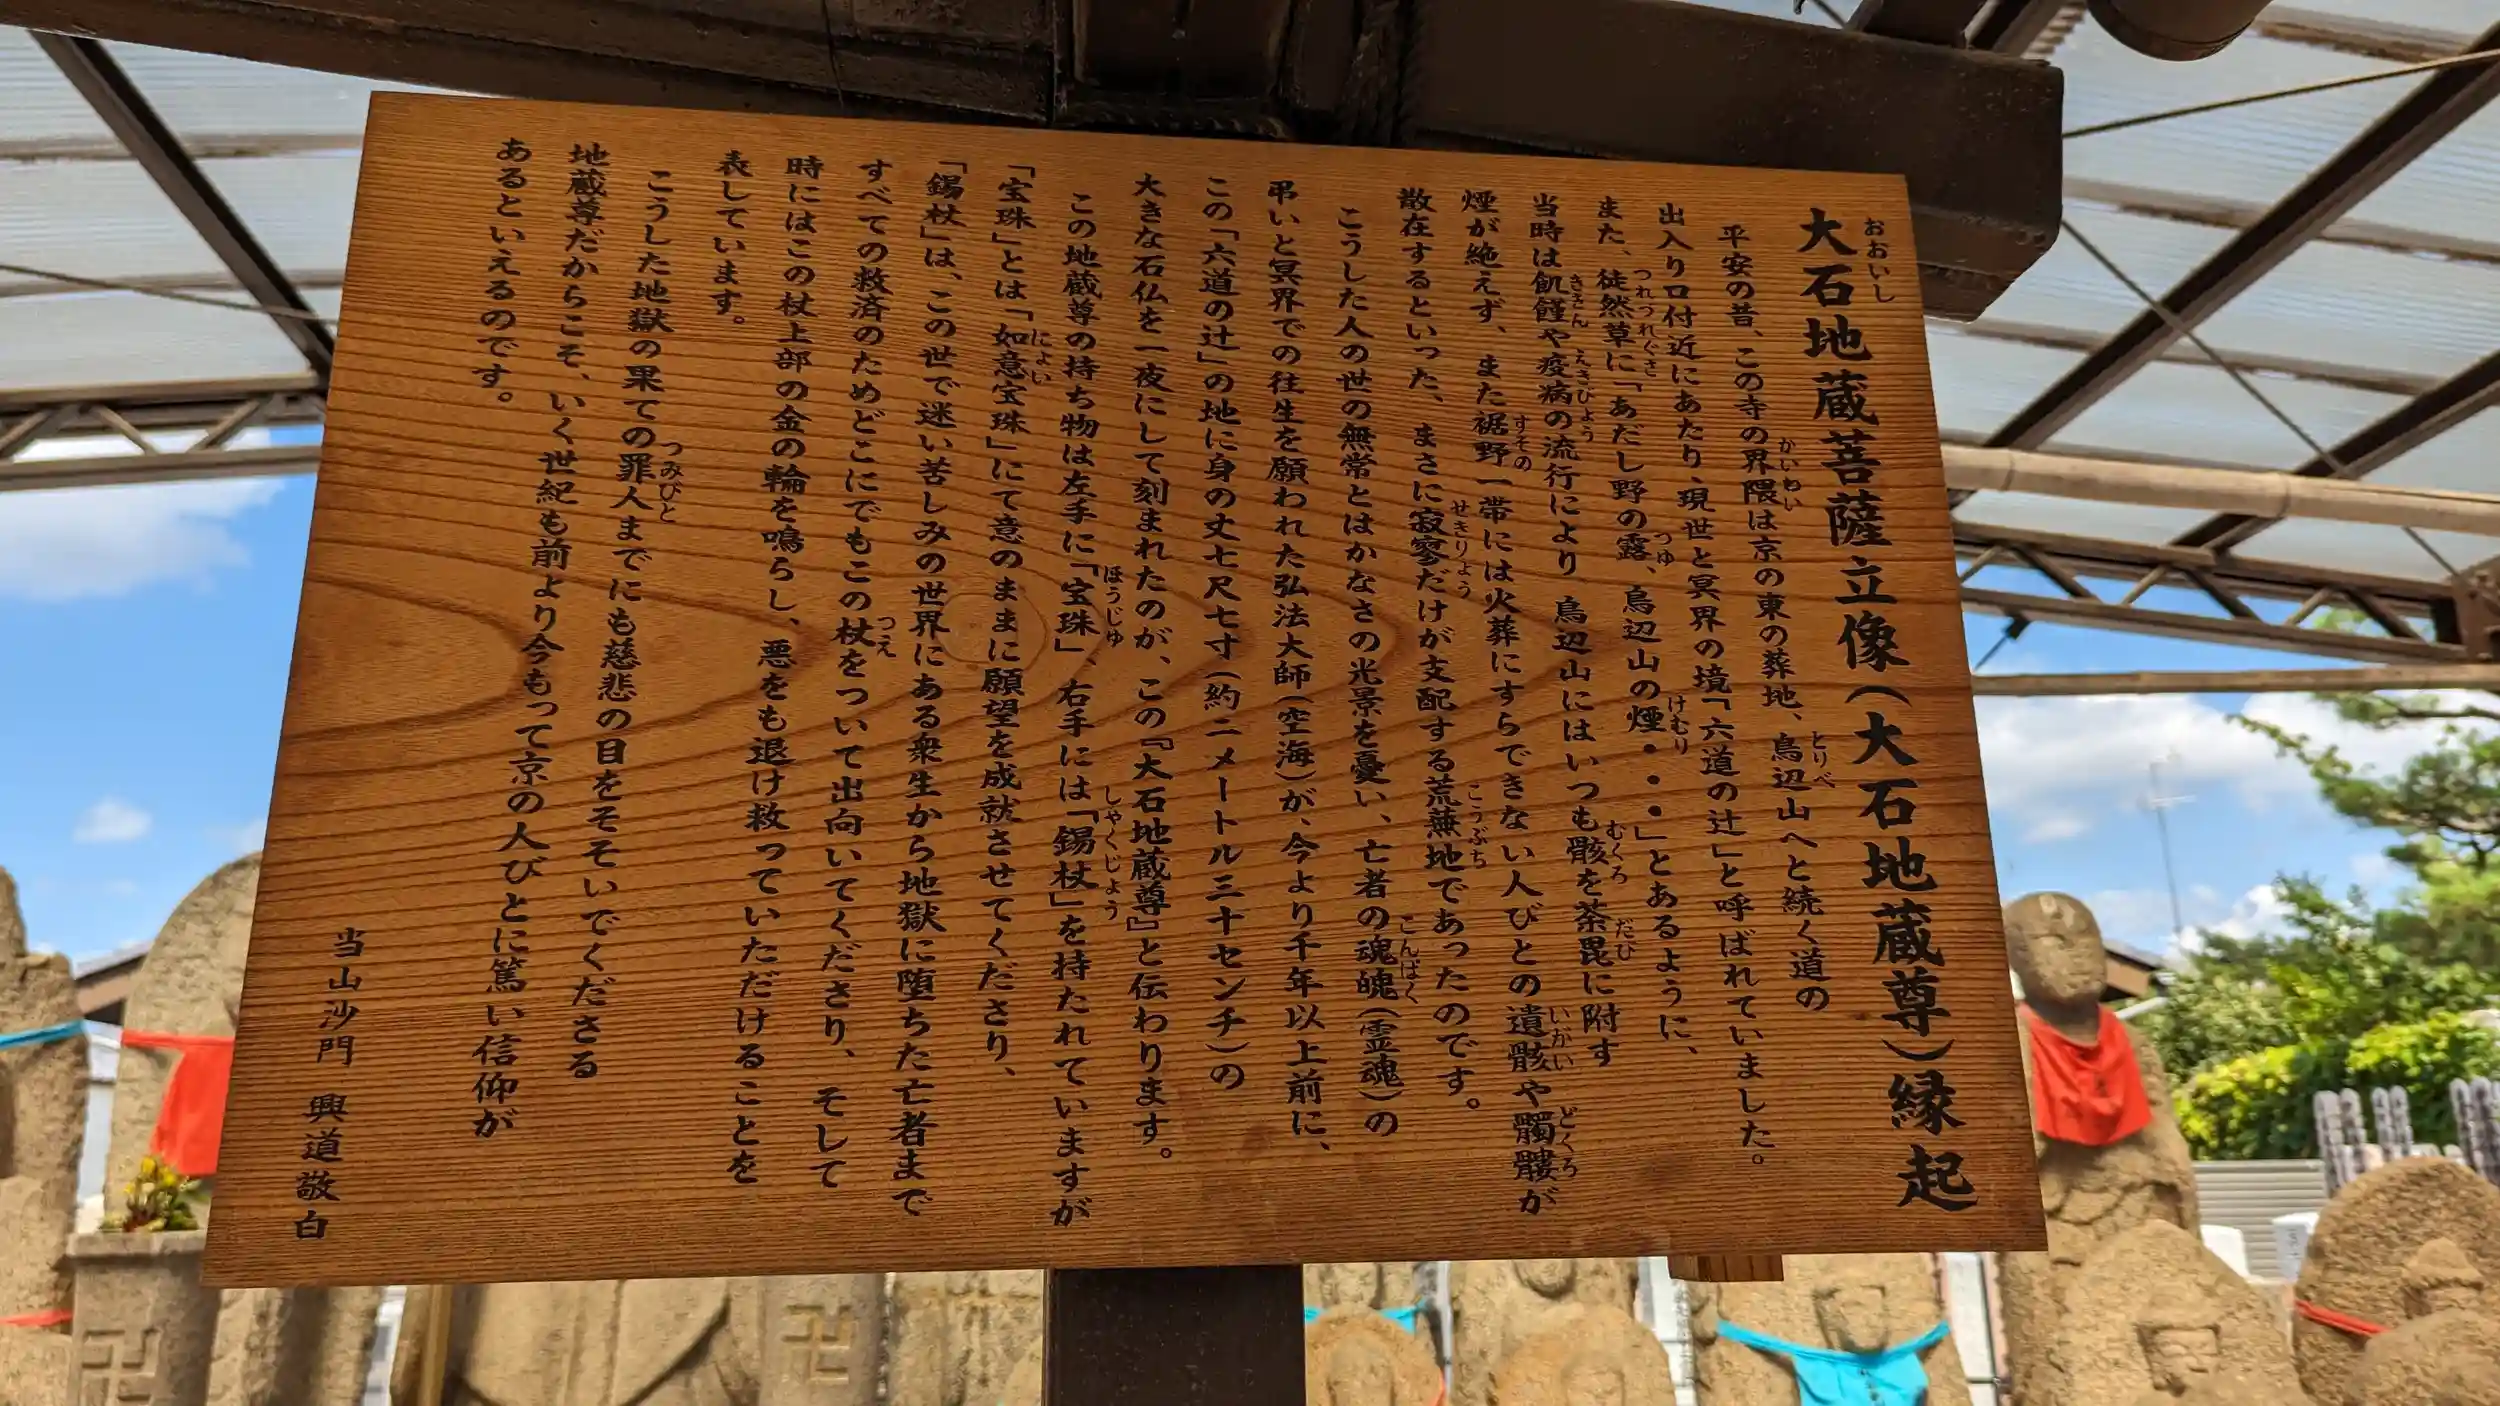 大石地蔵菩薩立像(大石地蔵尊)縁起
平安の昔、この寺の界隈は京の東の葬地、鳥辺山へと続く道の
出入り口付近にあたり、現世と冥界の境「六道の辻」と呼ばれていました。
また、徒然草に「あだし野の露、鳥辺山の煙・・・」とあるように、
当時は飢饉や疫病の流行により 鳥辺山にはいつも骸を荼毘に附す
煙が絶えず、また裾野一帯には火葬にすらできない人びとの遺骸や髑髏が
散在するといった、まさに寂寥だけが支配する荒蕪地であったのです。
こうした人の世の無常とはかなさの光景を憂い、亡者の魂魄(霊魂)の
弔いと冥界での往生を願われた弘法大師(空海)が、今より千年以上前に、
この「六道の辻」の地に身の丈七尺七寸(約二メートル三十センチ)の
大きな石仏を一夜にして刻まれたのが、この『大石地蔵尊』と伝わります。
この地蔵尊の持ち物は左手に「宝珠」、右手には「錫杖」を持たれていますが
「宝珠」とは「如意宝珠」にて意のままに願望を成就させてくださり、
「錫杖」は、この世で迷い苦しみの世界にある衆生から地獄に堕ちた亡者まで
すべての救済のためどこにでもこの杖をついて出向いてくださり、 そして
時にはこの杖上部の金の輪を鳴らし、悪をも退け救っていただけることを
表しています。
こうした地獄の果ての罪人までにも慈悲の目をそそいでくださる
地蔵尊だからこそ、いく世紀も前より今もって京の人びとに篤い信仰が
あるといえるのです。
当山沙門 興道敬白